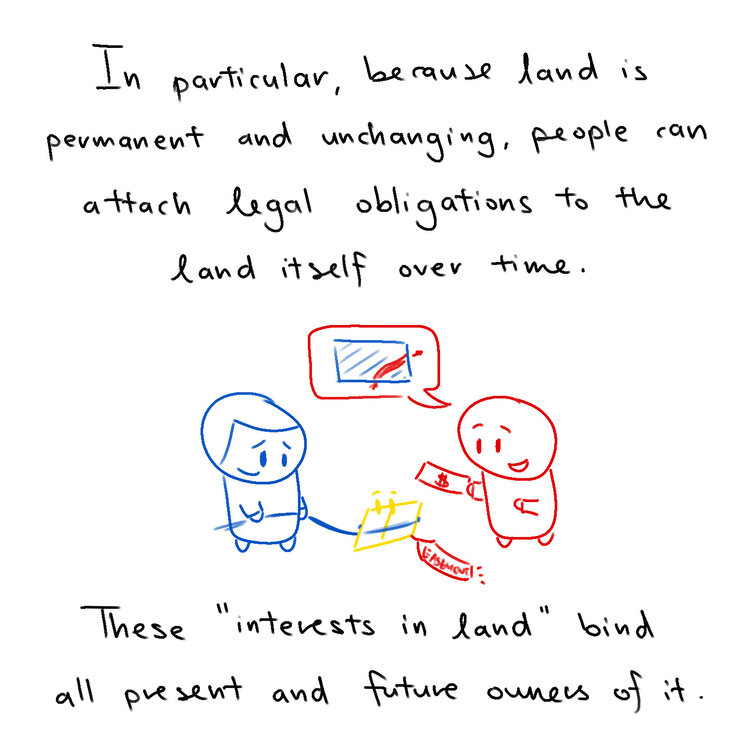 In particular, because land is
permanent and unchanging, people can
attach legal obligations to the
land itself over time.
$
EASEMENT
These "interests in land" bind
all present and future owners of it.